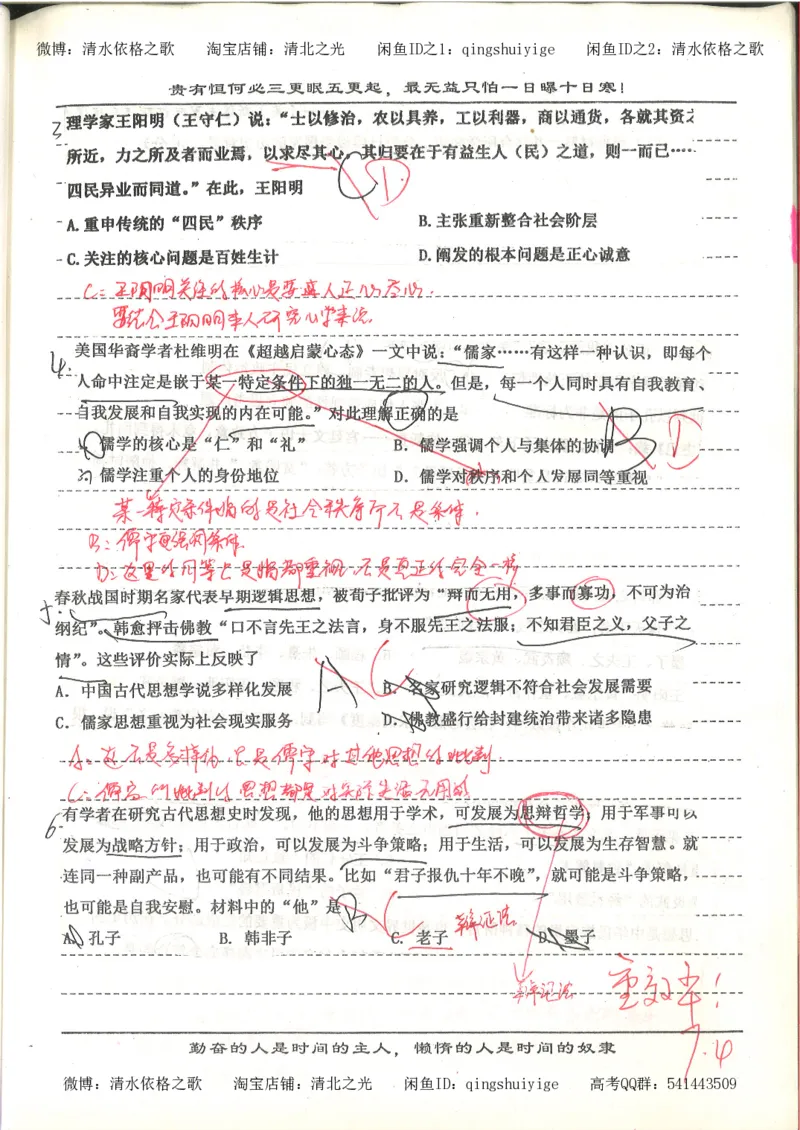 微博：清水依格之歌 淘宝店铺：清北之光 闲鱼ID之1：qingshuiyige 闲鱼ID之2：清水依格之歌
贵有恒何必三更眠五更起，最无益只怕一日曝十日寒！
3 理学家王阳明（王守仁）说：“士以修治，农以具养，工以利器，商以通货，各就其资之
所近，力之所及者而业焉，以求尽其心。其归要在于有益生人（民）之道，则一而已……
四民异业而同道。”在此，王阳明 C D
A.重申传统的“四民”秩序 B.主张重新整合社会阶层
C.关注的核心问题是百姓生计 D.阐发的根本问题是正心诚意
C：王阳明关注的核心是要求人正心诚心.
要结合王阳明本人研究心学来说
4. 美国华裔学者杜维明在《超越启蒙心态》一文中说：“儒家……有这样一种认识，即每个
人命中注定是嵌于某一特定条件下的独一无二的人。但是，每一个人同时具有自我教育、
自我发展和自我实现的内在可能。”对此理解正确的是 B D
儒学的核心是“仁”和“礼” B. 儒学强调个人与集体的协调
儒学注重个人的身份地位 D. 儒学对秩序和个人发展同等重视
某一特定条件指的是社会秩序而不是条件.
B：儒学更强调条件
D：这里的同等上是指都重视，不是真正的完全一样
春秋战国时期名家代表早期逻辑思想，被荀子批评为“辩而无用，多事而寡功，不可为治
纲纪”。韩愈抨击佛教“口不言先王之法言，身不服先王之法服；不知君臣之义，父子之
情”。这些评价实际上反映了 A C
A. 中国古代思想学说多样化发展 B. 名家研究逻辑不符合社会发展需要
C. 儒家思想重视为社会现实服务 D. 佛教盛行给封建统治带来诸多隐患
A：这不是多样化，只是儒学对其他思想的批判
C：儒家所批判的思想都是对实际生活无用的
6 有学者在研究古代思想史时发现，他的思想用于学术，可发展为思辩哲学；用于军事可以
发展为战略方针；用于政治，可以发展为斗争策略；用于生活，可以发展为生存智慧。就
连同一种副产品，也可能有不同结果。比如“君子报仇十年不晚”，就可能是斗争策略，
也可能是自我安慰。材料中的“他”是 B C 辩证法
A. 孔子 B. 韩非子 C. 老子 D. 墨子
辩证法 重效率！
7.4
勤奋的人是时间的主人，懒惰的人是时间的奴隶
微博：清水依格之歌 淘宝店铺：清北之光 闲鱼ID：qingshuiyige 高考QQ群：541443509